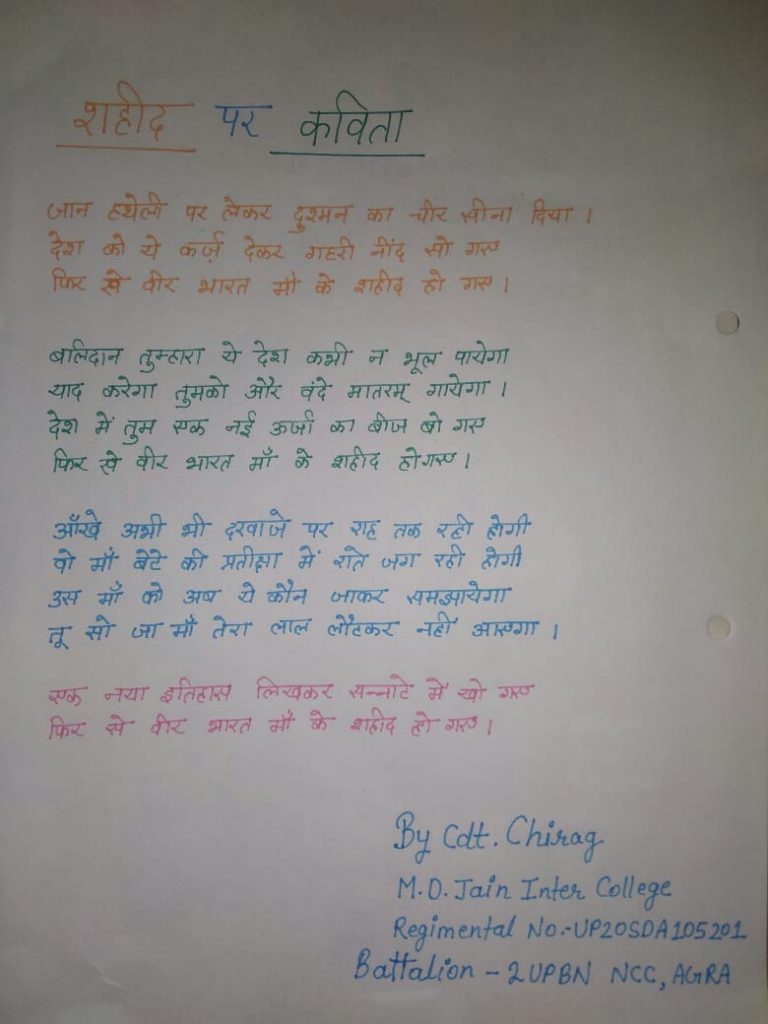 शहीद पर कविता
जान हथेली पर लेकर दुश्मन का चीर सीना दिया ।
देश को ये कर्ज़ देकर गहरी नींद सो गए
फिर से वीर भारत माँ के शहीद हो गए ।
बलिदान तुम्हारा ये देश कभी न भूल पायेगा
याद करेगा तुमको और वंदे मातरम् गायेगा ।
देश में तुम एक नई ऊर्जा का बीज बो गए
फिर से वीर भारत माँ के शहीद होगए ।
आँखे अभी भी दरवाजे पर राह तक रही होगी
वो माँ बेटे की प्रतीक्षा में राते जग रही होगी
उस माँ को अब ये कौन जाकर समझायेगा
तू सो जा माँ तेरा लाल लौटकर नहीं आएगा ।
एक नया इतिहास लिखकर सन्नाटे में खो गए
फिर से वीर भारत माँ के शहीद हो गए ।
By Cdt. Chirag
M.D. Jain Inter College
Regimental No.-UP20SDA105201
Battalion - 2UPBN NCC, AGRA